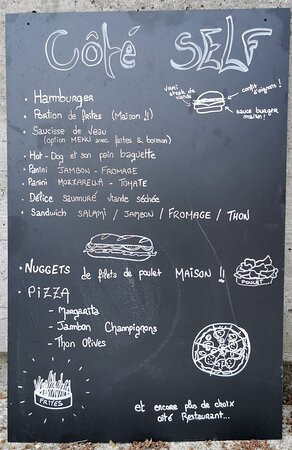 Côté SELF
vrai
steak de
viande
confit
d'oignons !
sauce burger
maison !
• Hamburger
• Portion de frites (Maison !!)
• Saucisse de veau
(option MENU avec frites & boisson)
• Hot-Dog et son pain baguette
• Panini JAMBON - FROMAGE
• Panini MOZZARELLA - TOMATE
• Délice saumuré viande séchée
• Sandwich SALAMI / JAMBON / FROMAGE / THON
• NUGGETS de filets de poulet MAISON !!
POULET
• PIZZA
- Margarita
- Jambon Champignons
- Thon Olives
FRITES
et encore plus de choix
côté Restaurant...